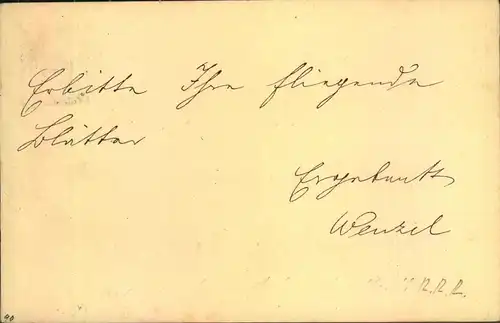 Erbitte Ihre fliegende
Blätter
Ergebenst
Wenzel
R.R.R.
90